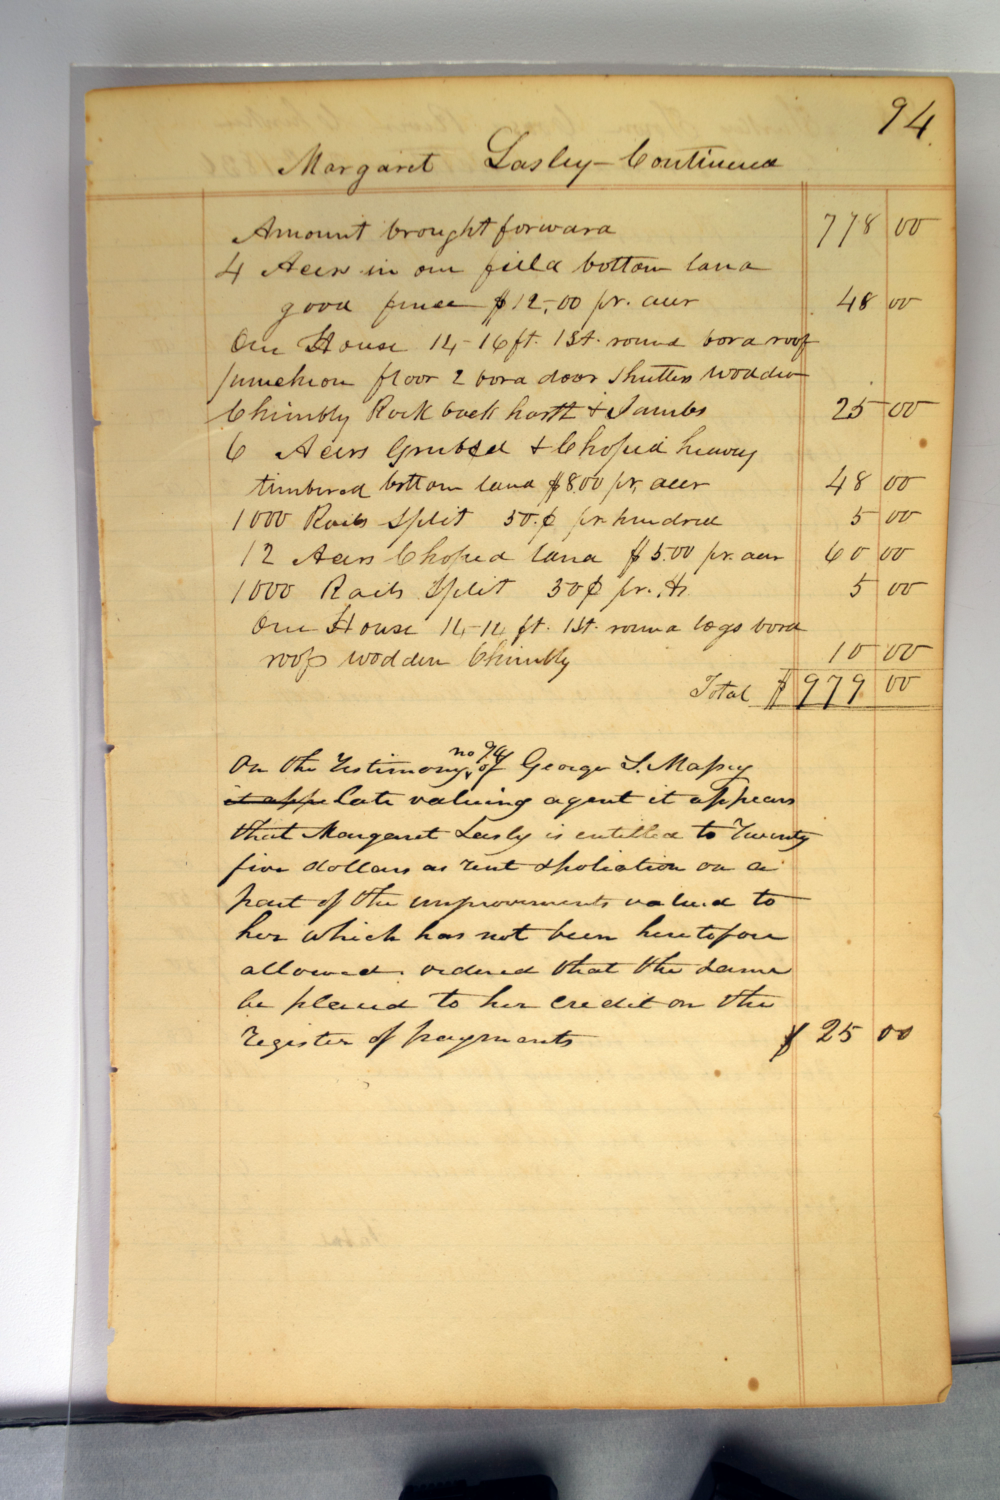 94
Margaret Lasley - Continued
Amount brought forward 778 00
4 Acers in one field bottom land
good fence $12,00 pr. acer 48 00
One House 14-16 ft. 1 St. round bord roof
puncheon floor 2 bord door Shutters wodden
Chimbly Rock back harth & Jambs 25 00
6 Acers Grubed & Choped heavey
timbered bottom land $8.00 pr. acer 48 00
1000 Rails Split 50.¢ pr hundred 5 00
12 Acers Choped land $5.00 pr. acer 60 00
1000 Rails Split 50¢ pr. H. 5 00
One House 14-14 ft. 1 St. round logs bord
roof wodden Chimbly 10 00
Total $ 979 00
On the Testimony no 94 of George S. Massey
it appe late valuing agent it appears
that Margaret Lasly is entitled to Twenty
five dollars as rent & spoliation on a
part of the improvements valued to
her which has not been heretofore
allowed. ordered that the same
be placed to her credit on the
register of payments $ 25 00